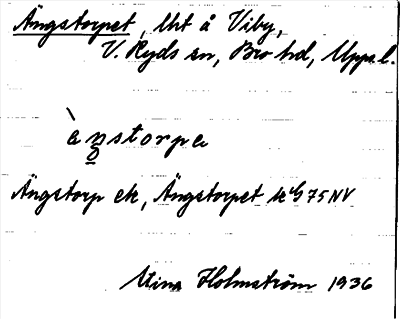 Ängstorpet, lht å Viby,
V. Ryds sn, Bro hd, Uppl.
àŋstorpa
Ängstorp ek, Ängstorpet k G 75 NV
Stina Holmström 1936